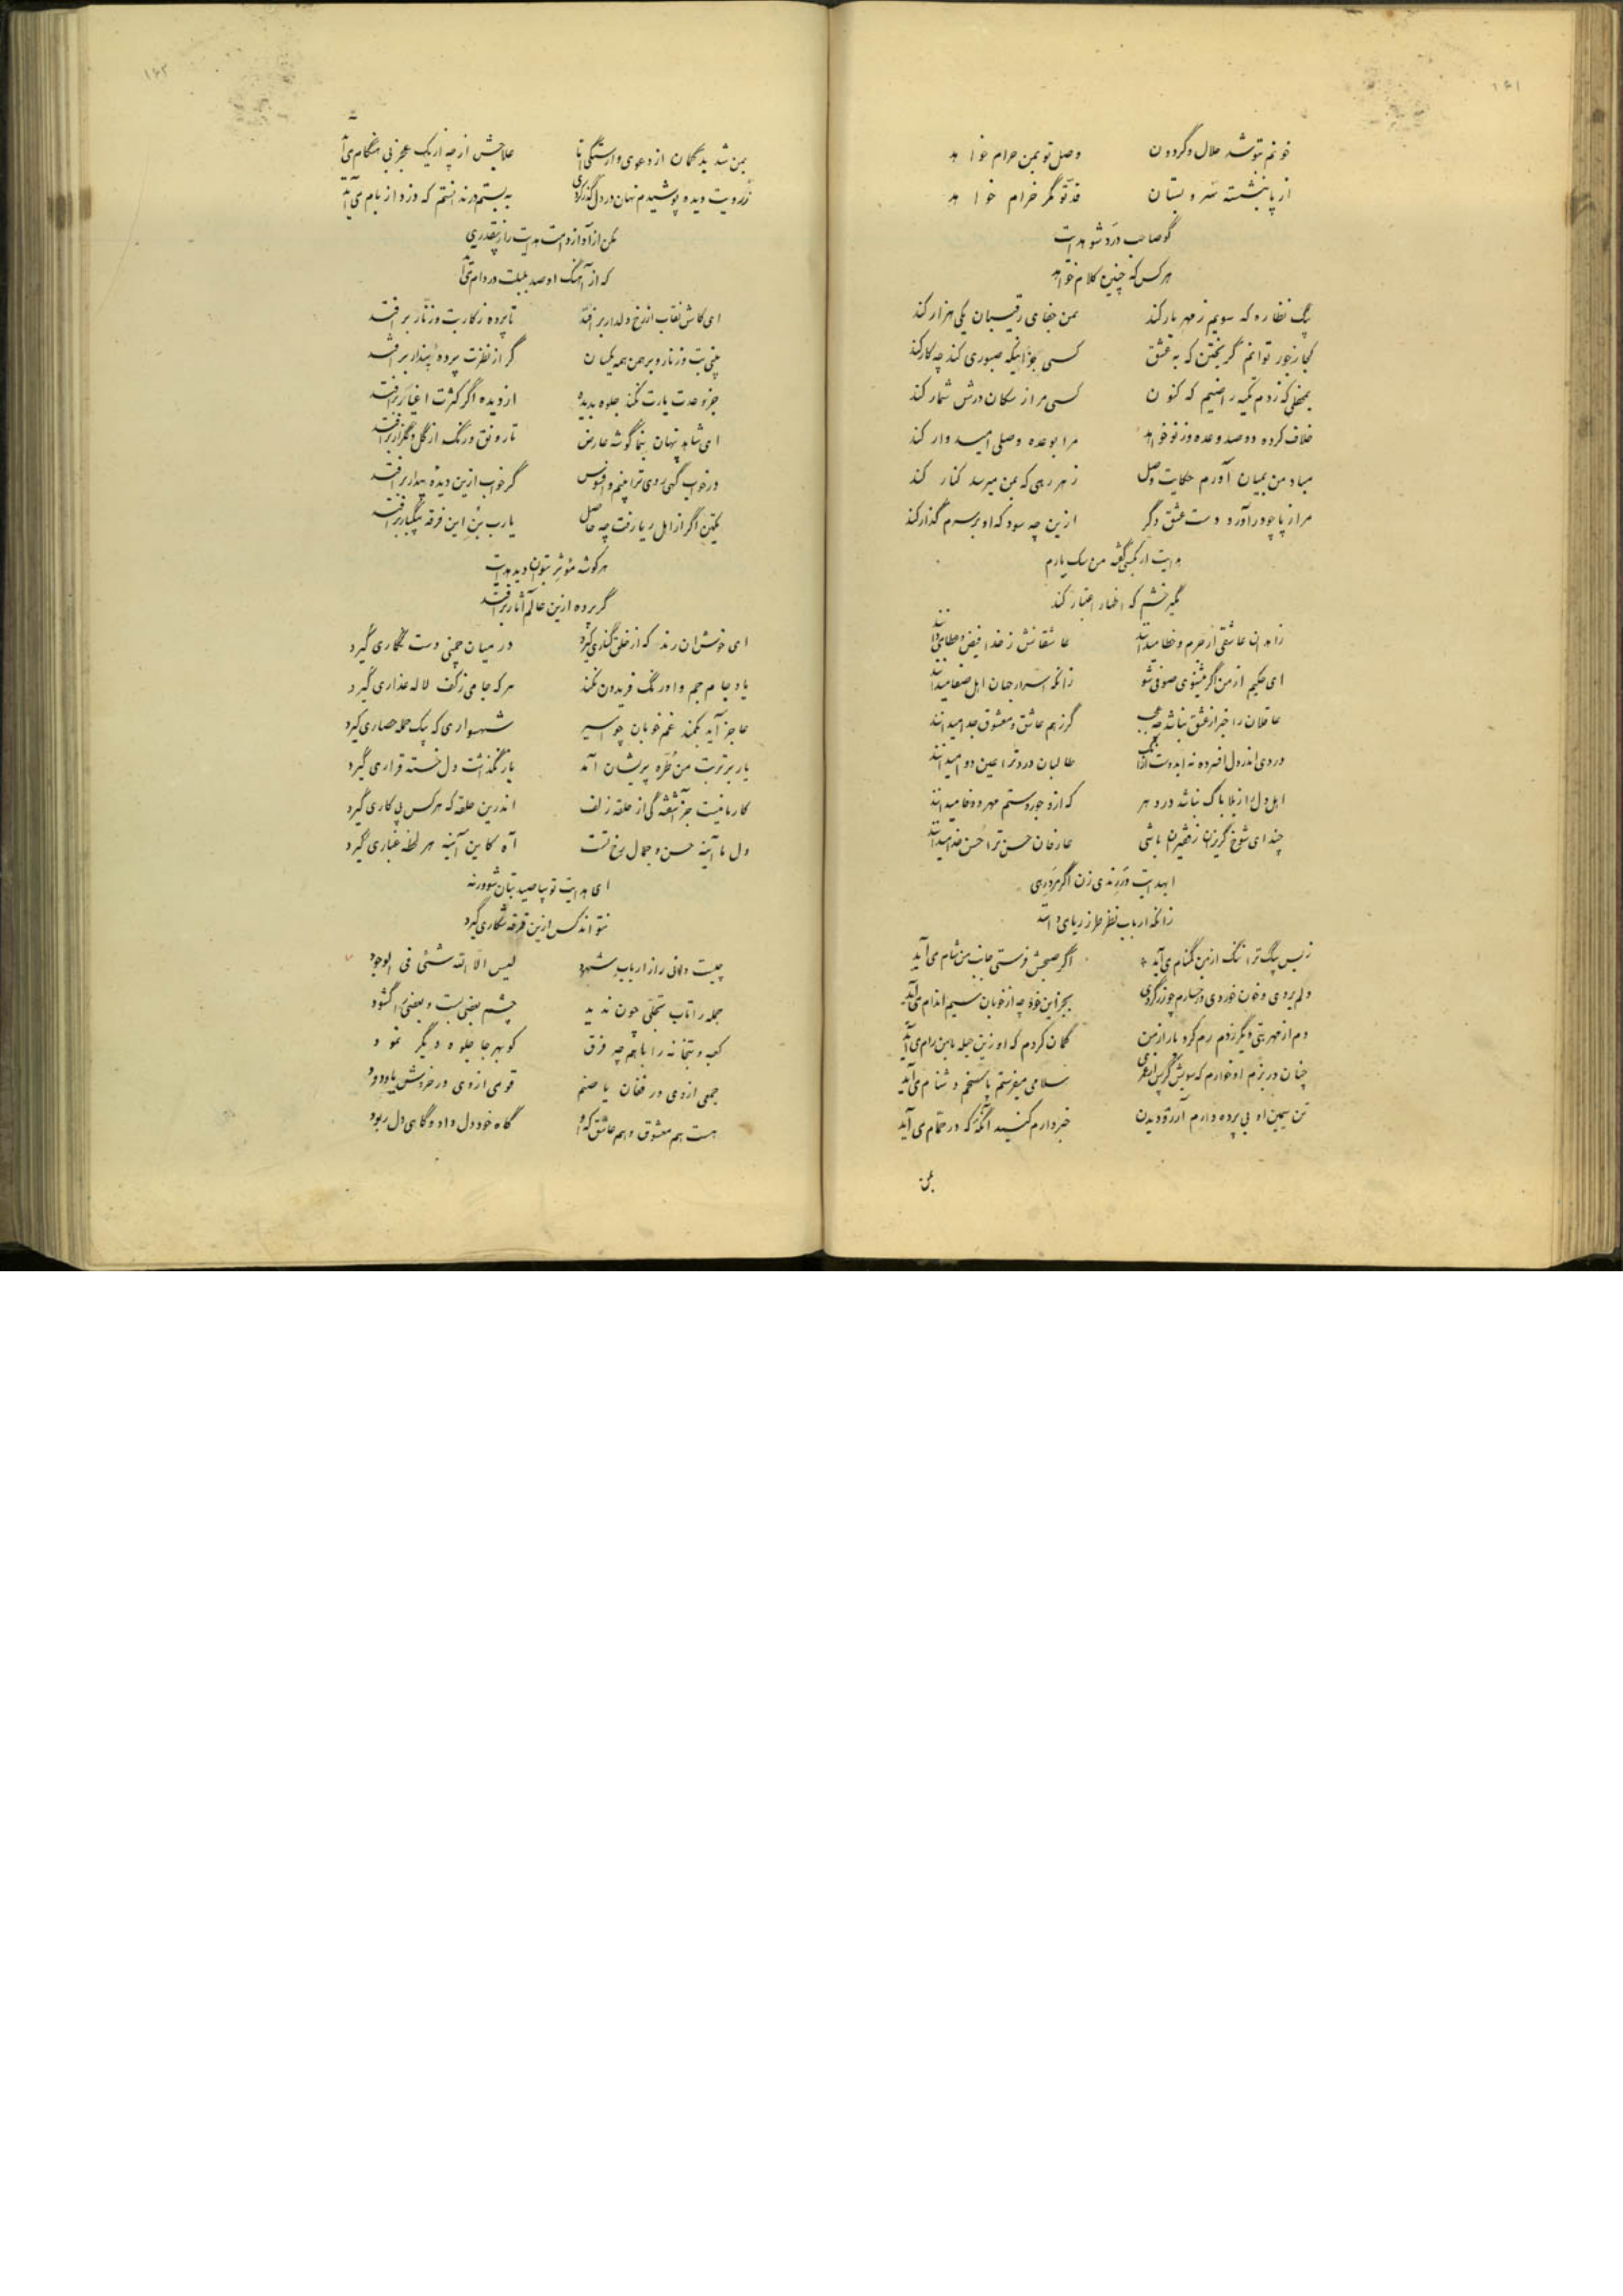 ۱۶۱
خونم بتو شد حلال و گردون وصل تو بمن حرام خواهد
از پا بنشسته سرو بستان قد تو مگر خرام خواهد
گو صاحب درد شو هدایت
هرکس که چنین کلام خواهد
بیک نظاره که سویم ز مهر یار کند بمن جفای رقیبان یکی هزار کند
کجا ز جور توانم گریختن که به عشق کسی بجز اینکه صبوری کند چه کار کند
کسی مرا ز سگان درش شمار کند
خلاف کرده دو صد وعده و ز نو خواهد مرا بوعده وصلی امیدوار کند
مباد من بمیان آورم حکایت وصل ز هر رهی که بمن میرسد کنار کند
مرا ز پا چو درآورد دست عشق دگر ازین چه سود که او بر سرم گذار کند
هدایت ار بکسی گفت من سگ یارم
مگیر خشم که اظهار اعتبار کند
زاهدان عاشقی از جرم و خطا میدانند عاشقانش ز خدا فیض و عطا میدانند
ای حکیم از من اگر میشنوی صوفی شو زانکه اسرار جهان اهل صفا میدانند
عاقلان را خبر از عشق نباشد چه عجب گر ز هم عاشق و معشوق جدا میدانند
طالبان درد ترا عین دوا میدانند
اهل دل را ز بلا باک نباشد در دهر که ازو جور و ستم مهر و وفا میدانند
چند ای شوخ گریزان ز فقیران باشی عارفان حسن ترا حسن خدا میدانند
ایهدایت در رندی زن اگر مرد رهی
زانکه ارباب نظر
ز بس بیک ترا ننگ از من گمنام می‌آید اگر صبحش فرستی جانب من شام می‌آید
دلم بردی و خون خوردی بجز این خود چه از خوبان سیم اندام می‌آید
دم از مهر بتی دیگر زدم رم کرد یار از من گمان کردم که او زین حیله با من رام می‌آید
چنان در بزم او خوارم که سویش گر پس از عمری سلامی میفرستم پاسخم دشنام می‌آید
تن سیمین او بی پرده دارم آرزو دیدن خبردارم کنید آنگه که در حمام می‌آید
بمن
۱۶۲
بمن شد بدگمان از دعوی وارستگی اما
ز رویت دیده پوشیدم نهان در دل گذر کردی به بستم در ندانستم که دزد از بام می‌آید
مکن از آواز دامت هدایت را ز بیقدری
که از آهنگ او صد بلبلت در دام می‌آید
ای کاش نقاب از رخ دلدار برافتد تا پرده ز کار بت و زنار برافتد
بینی بت و زنار و برهمن همه یکسان گر از نظرت پرده پندار برافتد
جز وحدت یارت نکند جلوه بدیده از دیده اگر کثرت اغیار برافتد
ای شاهد پنهان بنما گوشه عارض تا رونق و رنگ از گل و گلزار برافتد
در خواب گهی روی ترا بینم و افسوس گر خواب ازین دیده بیدار برافتد
یکتن اگر از اهل ریا رفت چه حاصل یارب بن این فرقه بیکبار برافتد
هر گوشه مؤثر بتوان دید هدایت
گر پرده ازین عالم آثار برافتد
ای خوش آن رند که از خلق کناری گیرد در میان چمنی دست نگاری گیرد
یاد جام جم و اورنگ فریدون نکند هر که جامی ز کف لاله عذاری گیرد
عاجز آید بکمند غم خوبان چو اسیر شهسواری که بیک حمله حصاری گیرد
یار بر تربت من طره پریشان آمد باز نگذاشت دل خسته قراری گیرد
کار ما نیست جز آشفتگی از حلقه زلف اندرین حلقه که هر کس پی کاری گیرد
دل ما آینه حسن و جمال رخ تست آه کاین آینه هر لحظه غباری گیرد
ای هدایت تو بیا صید بتان شو ورنه
نتواند کس ازین فرقه شکاری گیرد
چیست دانی راز ارباب شهود لیس الا الله شئی فی الوجود
جمله را تاب تجلی چون ندید چشم بعضی بست و بعضی را گشود
کعبه و بتخانه را باهم چه فرق کو بهر جا جلوه دیگر نمود
جمعی از وی در فغان یا صنم قومی از وی در خروش یا ودود
هست هم معشوق و هم عاشق که او گاه خود دل داد و گاهی دل ربود